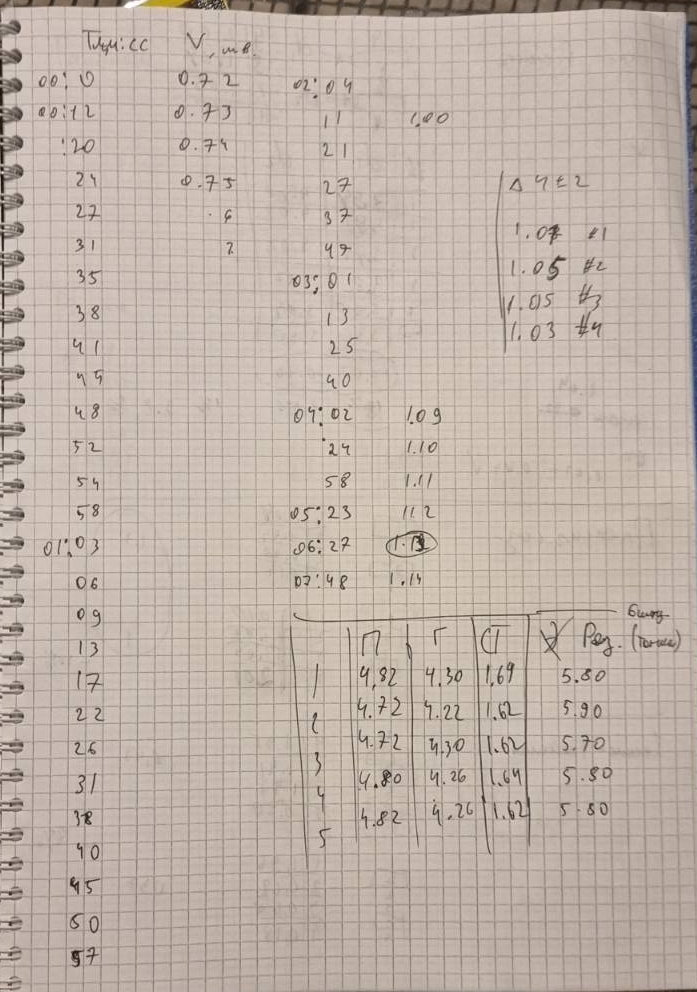 V, мв.
00:0 0.72
00:12 0.73
:20 0.74
24 0.75
27 . 6
31 7
35
38
41
45
48
52
54
58
01:03
06
09
13
17
22
26
31
38
40
45
50
57
02:04
11 1.00
21
27
37
47
03:01
13
25
40
04:02 1.09
24 1.10
58 1.11
05:23 1.12
06:27
07:48 1.14
Δ 4 ± 2
#1
1.05 #2
1.05 #3
1.03 #4
П Г СТ Рез.
1 4,82 4.30 1,69 5.80
2 4.72 4.22 1.62 5.90
3 4.72 4.30 1.62 5.70
4 4.80 4.26 1.64 5.80
5 4.82 4.26 1.62 5.80